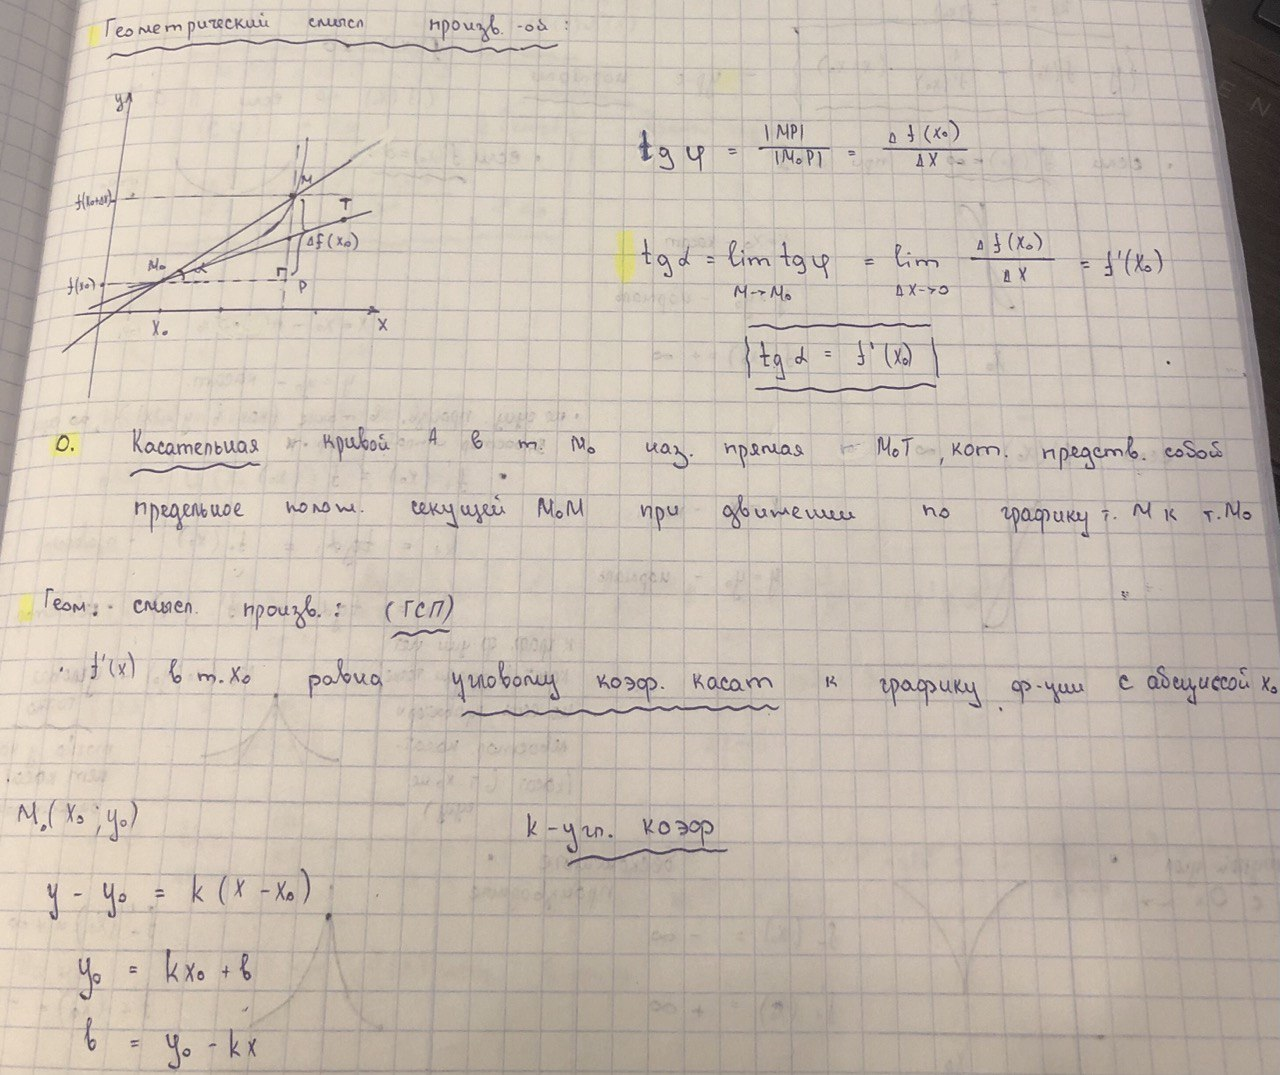 Геометрический смысл произв.-ой:
y
f(x₀+Δx)
M
T
Δf(x₀)
M₀
α
f(x₀)
P
x₀
x
tg φ = |MP| / |M₀P| = Δf(x₀) / Δx
tg α = lim tg φ = lim Δf(x₀) / Δx = f'(x₀)
M→M₀ Δx→0
tg α = f'(x₀)
О. Касательная кривой А в т. M₀ наз. прямая M₀T, кот. представ. собой
предельное полож. секущей M₀M при движении по графику т. M к т. M₀
Геом. смысл. произв.: (ГСП)
f'(x) в т. x₀ равна угловому коэф. касат к графику ф-ции с абсциссой x₀
M₀(x₀; y₀)
k - угл. коэф
y - y₀ = k(x - x₀)
y₀ = kx₀ + в
в = y₀ - kx